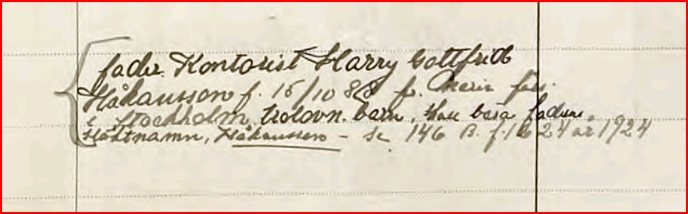 fader: Kontorist Harry Gottfrid
Håkansson f. 15/10 88 fr. Maria förs.
i Stockholm, trolovn. barn, skall bära faderns
släktnamn, Håkansson – se 146 B. f. 1624 år 1924